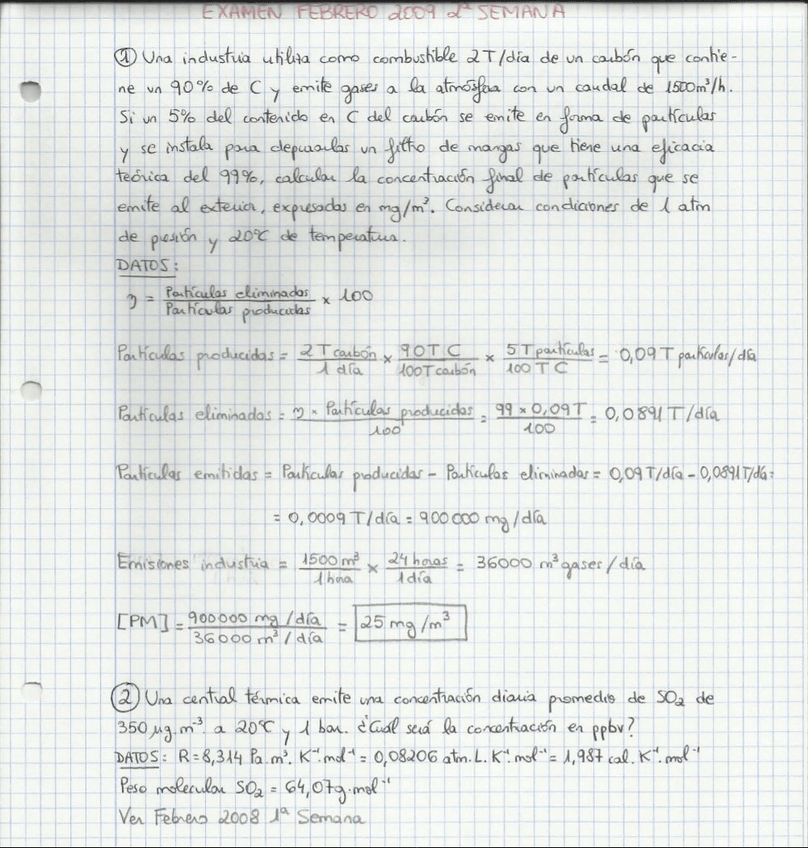 EXAMEN FEBRERO 2009 2ª SEMANA
① Una industria utiliza como combustible 2T/día de un carbón que contie-
ne un 90% de C y emite gases a la atmósfera con un caudal de 1500m³/h.
Si un 5% del contenido en C del carbón se emite en forma de partículas
y se instala para depurarlas un filtro de mangas que tiene una eficacia
teórica del 99%, calcular la concentración final de partículas que se
emite al exterior, expresadas en mg/m³. Considerar condiciones de 1 atm
de presión y 20ºC de temperatura.
DATOS:
η = Partículas eliminadas / Partículas producidas × 100
Partículas producidas = 2 T carbón / 1 día × 90 T C / 100 T carbón × 5 T partículas / 100 T C = 0,09 T partículas/día
Partículas eliminadas = η × Partículas producidas / 100 = 99 × 0,09 T / 100 = 0,0891 T/día
Partículas emitidas = Partículas producidas - Partículas eliminadas = 0,09 T/día - 0,0891 T/día =
= 0,0009 T/día = 900000 mg/día
Emisiones industria = 1500 m³ / 1 hora × 24 horas / 1 día = 36000 m³ gases/día
[PM] = 900000 mg/día / 36000 m³/día = 25 mg/m³
② Una central térmica emite una concentración diaria promedio de SO₂ de
350 μg.m⁻³. a 20ºC y 1 bar. ¿Cuál será la concentración en ppbv?
DATOS: R=8,314 Pa.m³. K⁻¹.mol⁻¹ = 0,08206 atm.L.K⁻¹.mol⁻¹ = 1,987 cal.K⁻¹.mol⁻¹
Peso molecular SO₂ = 64,07g.mol⁻¹
Ver Febrero 2008 1ª Semana